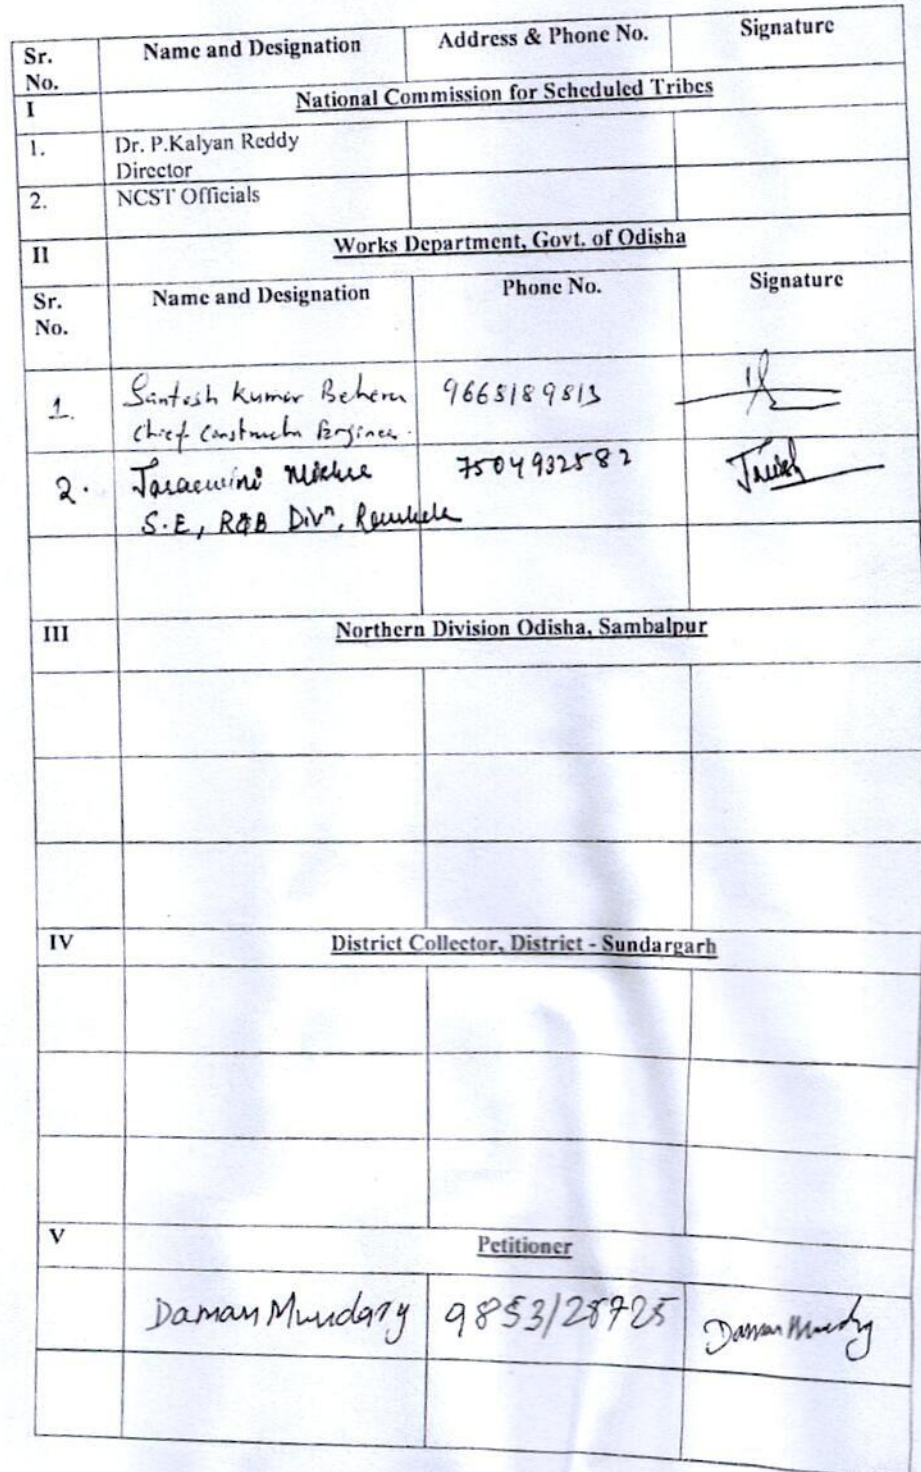 Sr. No. Name and Designation Address & Phone No. Signature
I National Commission for Scheduled Tribes
1. Dr. P.Kalyan Reddy
Director
2. NCST Officials
II Works Department, Govt. of Odisha
Sr. No. Name and Designation Phone No. Signature
1. Santosh Kumar Behera 9665189813
Chief Constructn Engineer.
2. Mishra 7504932582
S.E, R&B Divn, Rourkela
III Northern Division Odisha, Sambalpur
IV District Collector, District - Sundargarh
V Petitioner
Daman Mundary 9853128725 Daman Mundary